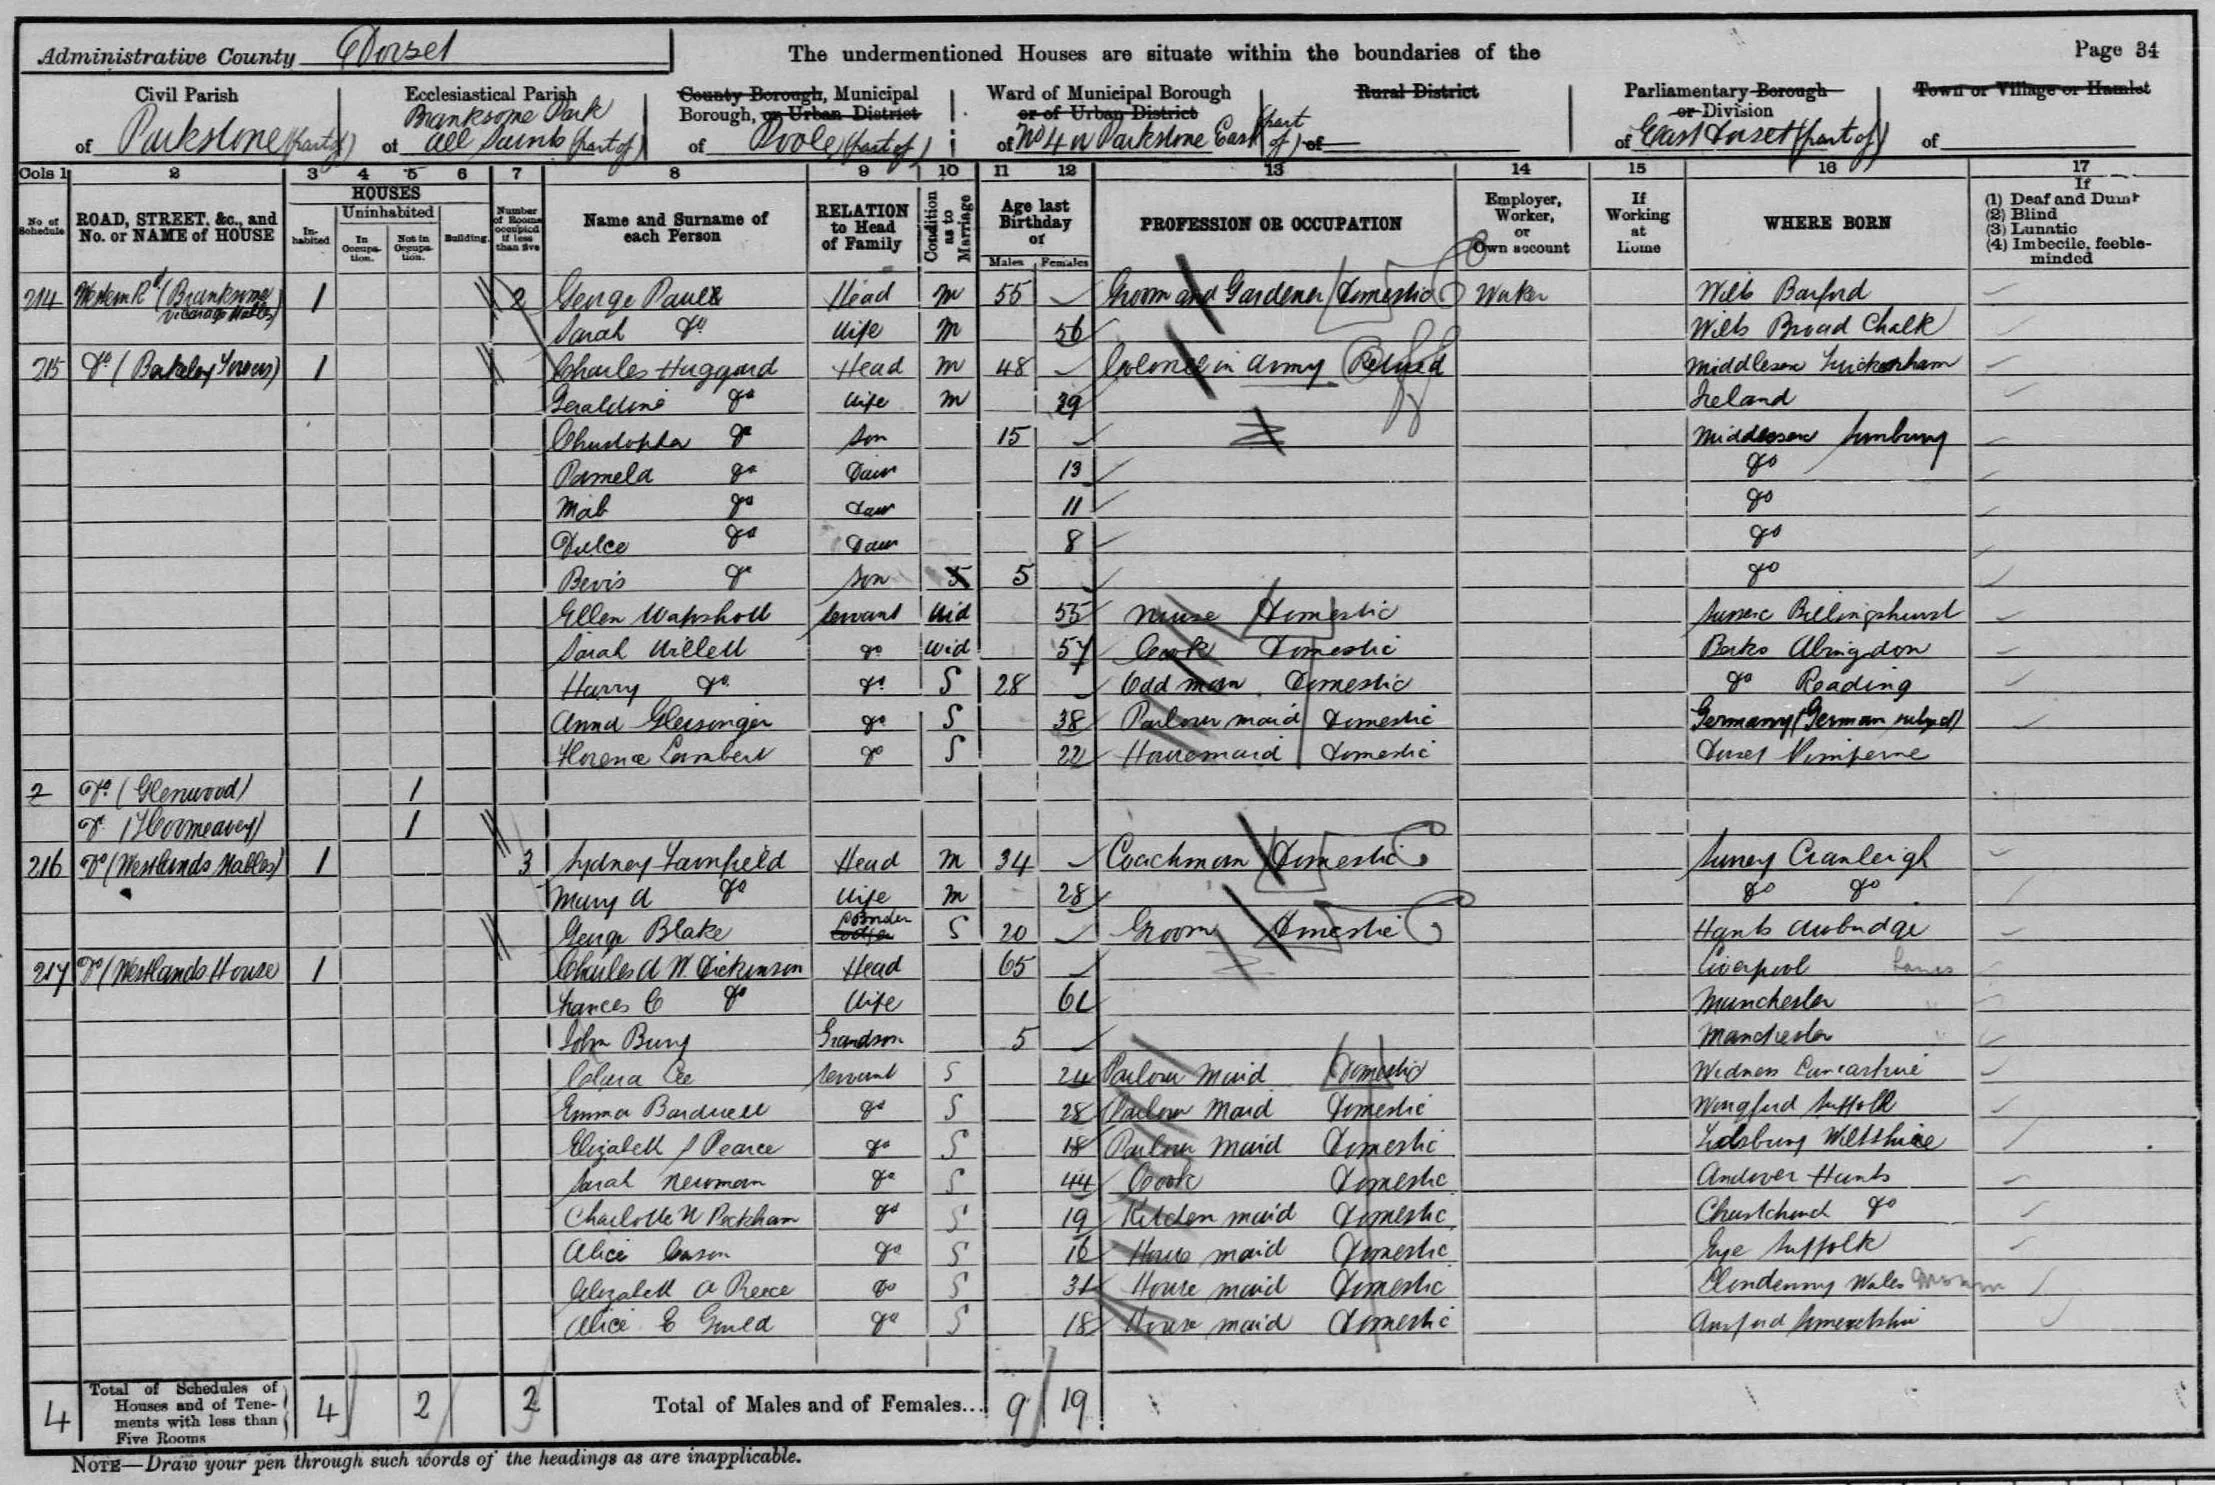 Administrative County Dorset
The undermentioned Houses are situate within the boundaries of the
Page 34
Civil Parish of Parkstone (part of)
Ecclesiastical Parish of Branksome Park All Saints (part of)
County Borough, Municipal Borough, or Urban District of Poole (part of)
Ward of Municipal Borough or of Urban District of No 4 or Parkstone East (part of)
Rural District of
Parliamentary Borough or Division of East Dorset (part of)
Town or Village or Hamlet of
Cols 1 2 3 4 5 6 7 8 9 10 11 12 13 14 15 16 17
No. of Schedule
ROAD, STREET, &c., and No. or NAME of HOUSE
HOUSES
Inhabited
Uninhabited
In Occupation.
Not in Occupation.
Building.
Number of Rooms occupied if less than five
Name and Surname of each Person
RELATION to Head of Family
Condition as to Marriage
Age last Birthday of
Males Females
PROFESSION OR OCCUPATION
Employer, Worker, or Own account
If Working at Home
WHERE BORN
If (1) Deaf and Dumb (2) Blind (3) Lunatic (4) Imbecile, feeble-minded
214 Western Rd (Branksome Vicarage Stables) 1 2 George Head M 55 Groom and Gardener Domestic Worker Wilts Barford
Sarah Do Wife M 56 Wilts Broad Chalk
215 Do (Berkeley Towers) 1 Charles Huggard Head M 48 Colonel in Army Retired Middlesex Twickenham
Geraldine Do Wife M 39 Ireland
Christopher Do Son 15 Middlesex Sunbury
Pamela Do Daur 13 Do
Mab Do Daur 11 Do
Dulce Do Daur 8 Do
Bevis Do Son S 5 Do
Ellen Wapshott Servant Wid 55 Nurse Domestic Sussex Billingshurst
Sarah Willett Do Wid 57 Cook Domestic Berks Abingdon
Harry Do Do S 28 Odd man Domestic Do Reading
Anna Glessinger Do S 38 Parlour maid Domestic Germany (German subject)
Florence Lambert Do S 22 Housemaid Domestic Dorset Pimperne
2 Do (Glenwood) 1
Do 1
216 Do (Westlands Stables) 1 3 Sydney Farnfield Head M 34 Coachman Domestic Surrey Cranleigh
Mary A Do Wife M 28 Do Do
George Blake Boarder S 20 Groom Domestic Hants Awbridge
217 Do (Westlands House 1 Charles A W Dickinson Head 65 Liverpool Lancs
Frances C Do Wife 61 Manchester
John Bury Grandson 5 Manchester
Clara Lee Servant S 24 Parlour Maid Domestic Widnes Lancashire
Emma Bardwell Do S 28 Parlour Maid Domestic Wingfield Suffolk
Elizabeth J Pearce Do S 18 Parlour Maid Domestic Wiltshire
Sarah Newman Do S 44 Cook Domestic Andover Hants
Charlotte N Peckham Do S 19 Kitchen maid Domestic Christchurch Do
Alice Do S 16 House maid Domestic Eye Suffolk
Elizabeth A Preece Do S 31 House maid Domestic Wales
Alice E Gould Do S 18 House maid Domestic Ansford Somersetshire
4 Total of Schedules of Houses and of Tenements with less than Five Rooms 4 2 2 Total of Males and of Females... 9 19
NOTE—Draw your pen through such words of the headings as are inapplicable.